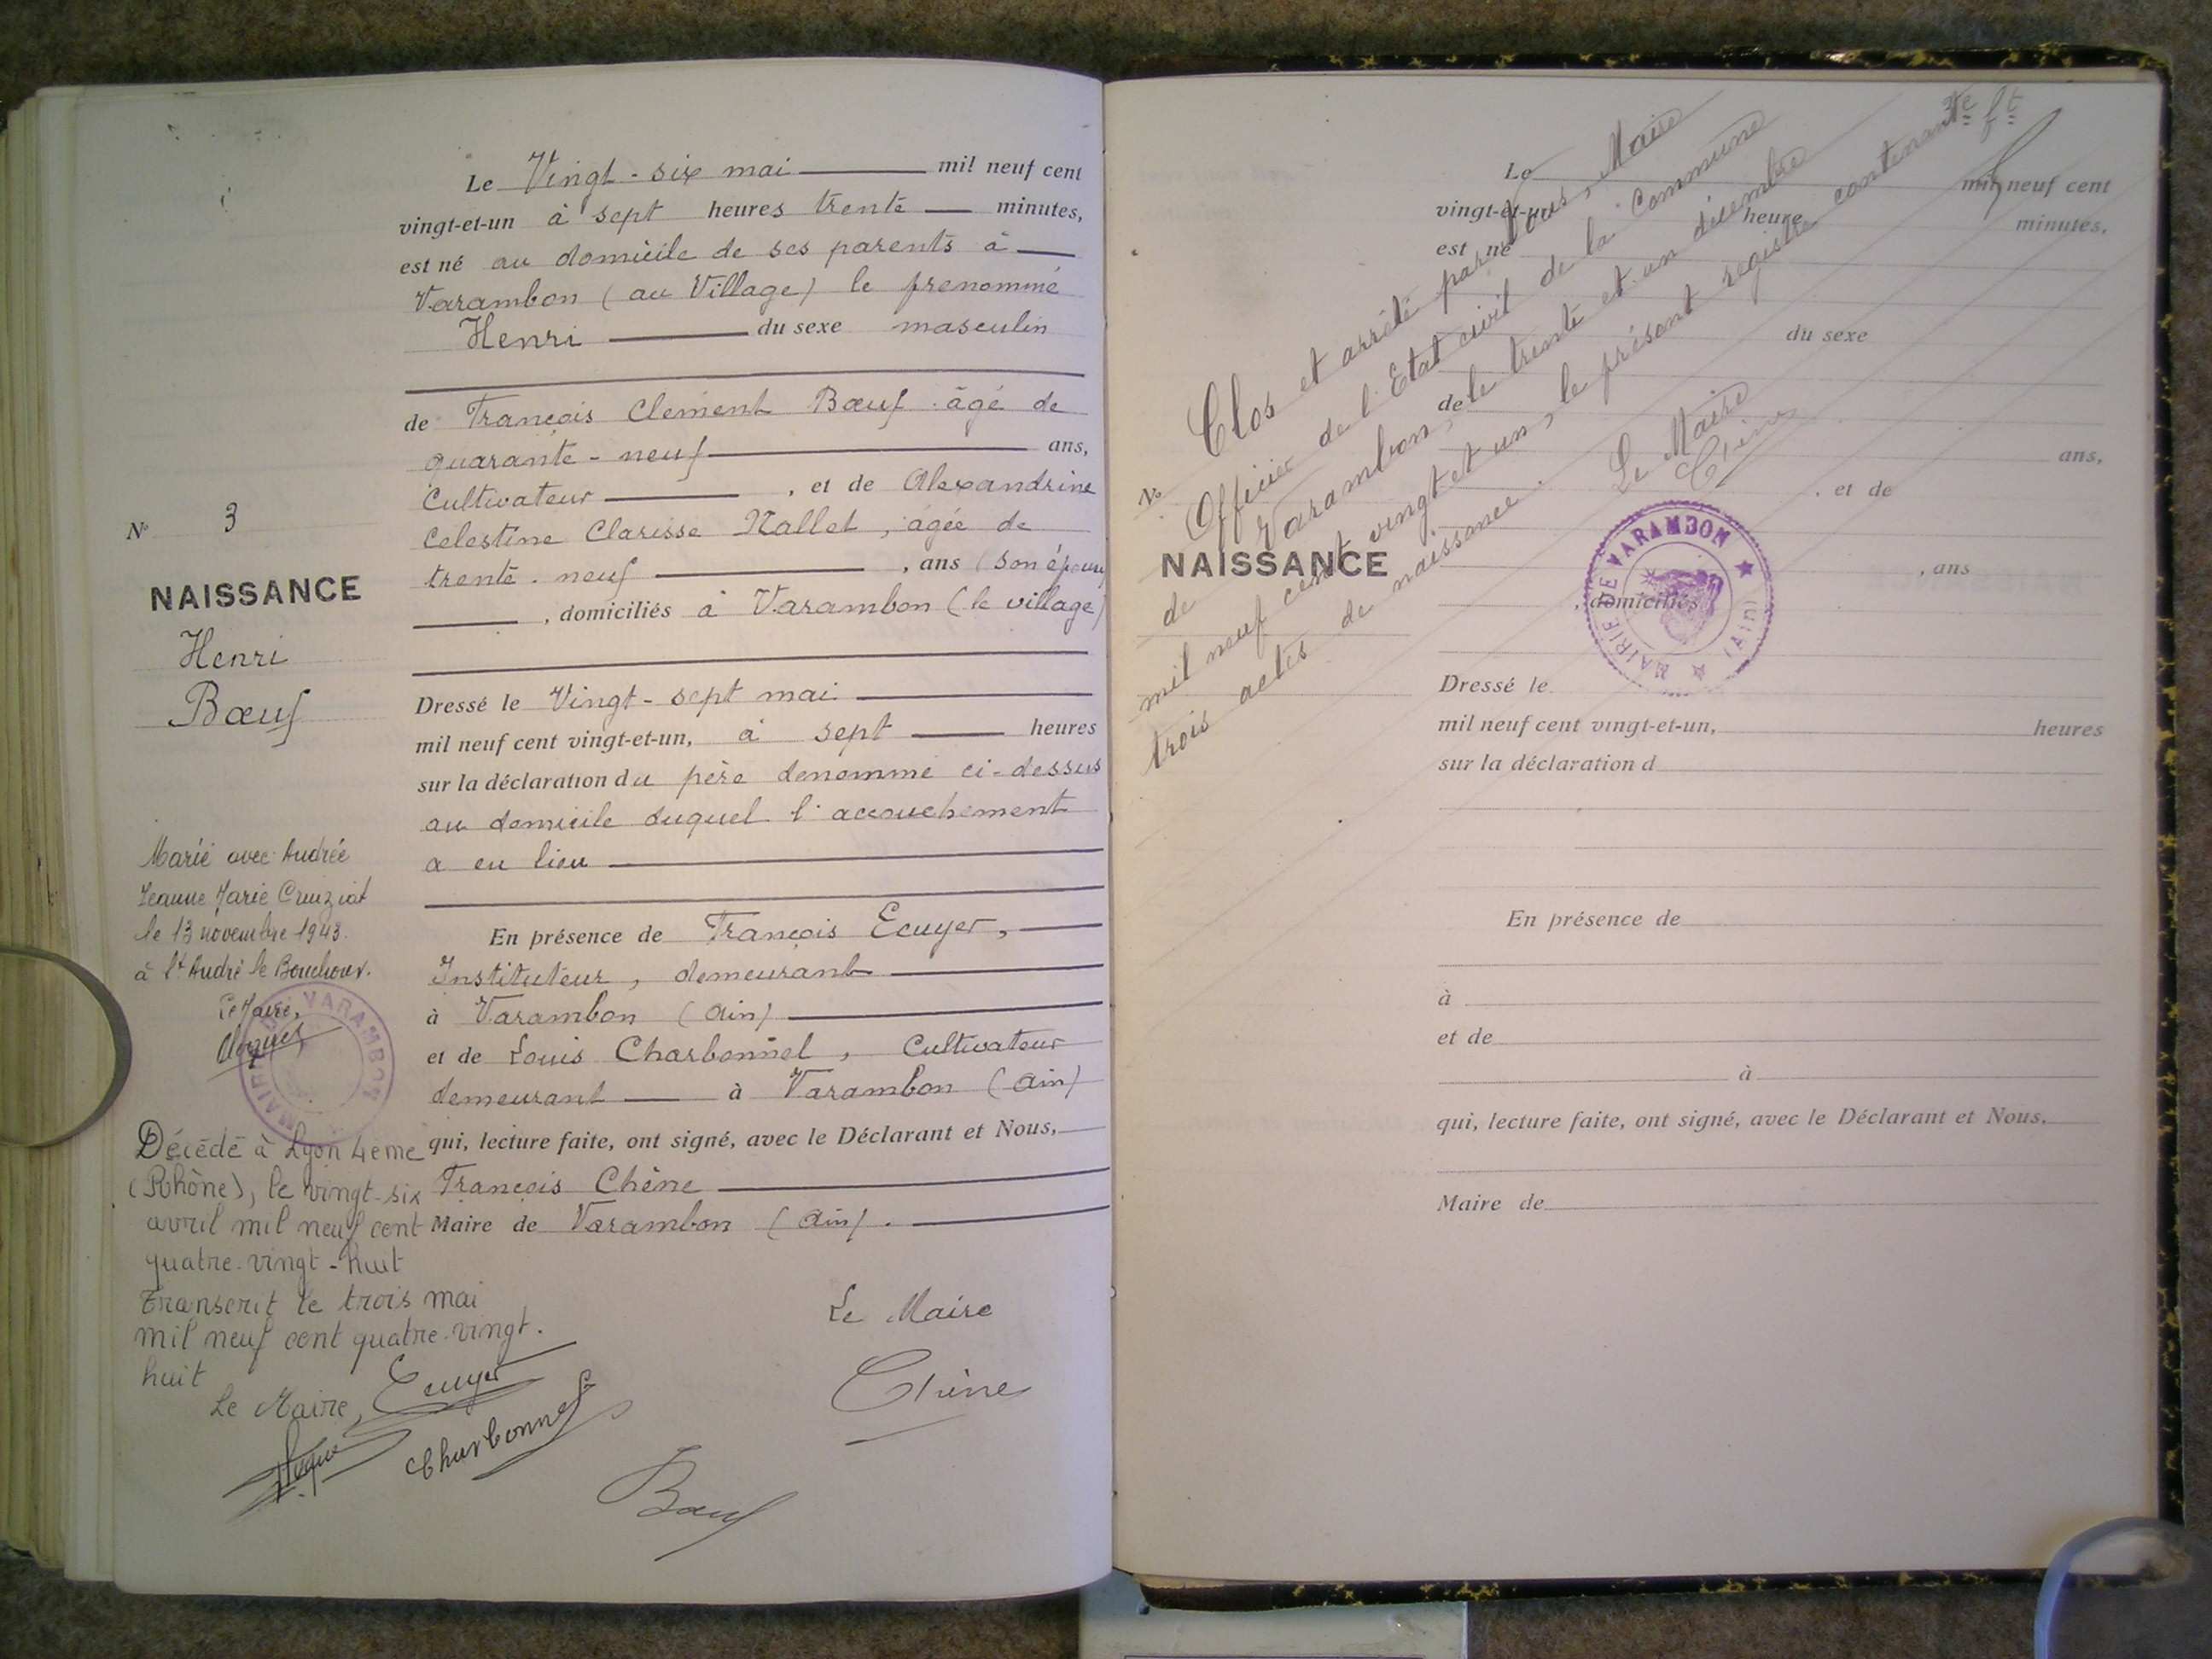 Le Vingt-six mai mil neuf cent
vingt-et-un à sept heures trente minutes,
est né au domicile de ses parents à
Varambon (au Village) le prénommé
Henri du sexe masculin
de François Clement Bœuf âgé de
quarante-neuf ans,
Cultivateur, et de Alexandrine
Celestine Clarisse Nallet, âgée de
trente-neuf, ans (son épouse
, domiciliés à Varambon (le village)
Dressé le Vingt-sept mai
mil neuf cent vingt-et-un, à sept heures
sur la déclaration du père dénommé ci-dessus
au domicile duquel l'accouchement
a eu lieu
En présence de François Ecuyer,
Instituteur, demeurant
à Varambon (Ain)
et de Louis Charbonnel, Cultivateur
demeurant à Varambon (Ain)
qui, lecture faite, ont signé, avec le Déclarant et Nous,
François Chêne
Maire de Varambon (Ain).
Le Maire
Chêne
Ecuyer
Charbonnel
Bœuf
N° 3
NAISSANCE
Henri
Bœuf
Marié avec Andrée
Jeanne Marie Cruiziat
le 13 novembre 1943.
à St André le Bouchoux.
Le Maire,
MAIRIE DE VARAMBON
Décédé à Lyon 4ème
(Rhône), le vingt-six
avril mil neuf cent
quatre-vingt-huit
Transcrit le trois mai
mil neuf cent quatre-vingt.
huit
Le Maire,
Clos et arrêté par Nous, Maire
Officier de l'Etat civil de la Commune
de Varambon, le trente et un décembre
mil neuf cent vingt et un, le présent registre contenant
trois actes de naissance.
Le Maire
Chêne
MAIRIE DE VARAMBON (Ain)
Le mil neuf cent
vingt-et-un heure minutes,
est né
du sexe
de
ans,
N°
, et de
NAISSANCE
, ans
, domiciliés
Dressé le
mil neuf cent vingt-et-un, heures
sur la déclaration d
En présence de
à
et de
à
qui, lecture faite, ont signé, avec le Déclarant et Nous,
Maire de